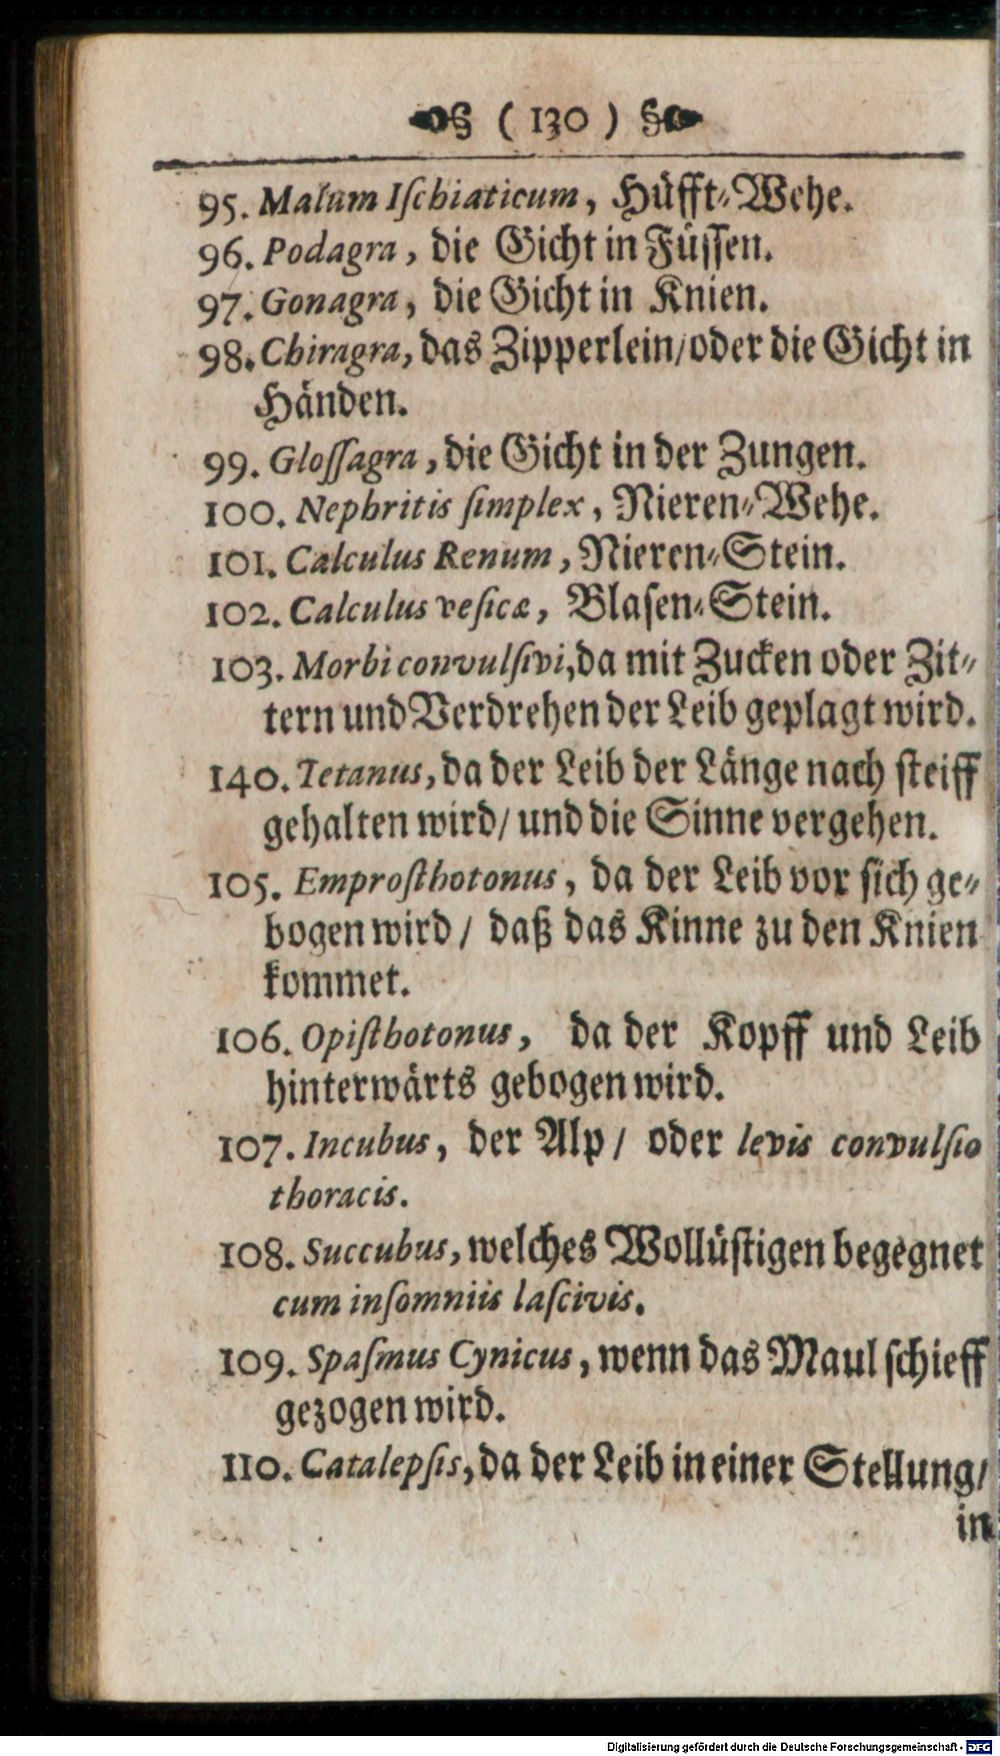 § ( 130 ) §
95. Malum Iſchiaticum, Hüfft⸗Wehe.
96. Podagra, die Gicht in Füſſen.
97. Gonagra, die Gicht in Knien.
98. Chiragra, das Zipperlein/oder die Gicht in
Händen.
99. Gloſſagra, die Gicht in der Zungen.
100. Nephritis ſimplex, Nieren⸗Wehe.
101. Calculus Renum, Nieren⸗Stein.
102. Calculus veſicæ, Blaſen⸗Stein.
103. Morbi convulſivi, da mit Zucken oder Zit⸗
tern und Verdrehen der Leib geplagt wird.
140. Tetanus, da der Leib der Länge nach ſteiff
gehalten wird/ und die Sinne vergehen.
105. Emproſthotonus, da der Leib vor ſich ge⸗
bogen wird/ daß das Kinne zu den Knien
kommet.
106. Opiſthotonus, da der Kopff und Leib
hinterwärts gebogen wird.
107. Incubus, der Alp/ oder levis convulſio
thoracis.
108. Succubus, welches Wollüſtigen begegnet
cum inſomniis laſcivis.
109. Spaſmus Cynicus, wenn das Maul ſchieff
gezogen wird.
110. Catalepſis, da der Leib in einer Stellung/
in
Digitalisierung gefördert durch die Deutsche Forschungsgemeinschaft - DFG